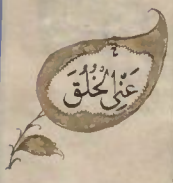 عَنِّى الْخُلُقَ